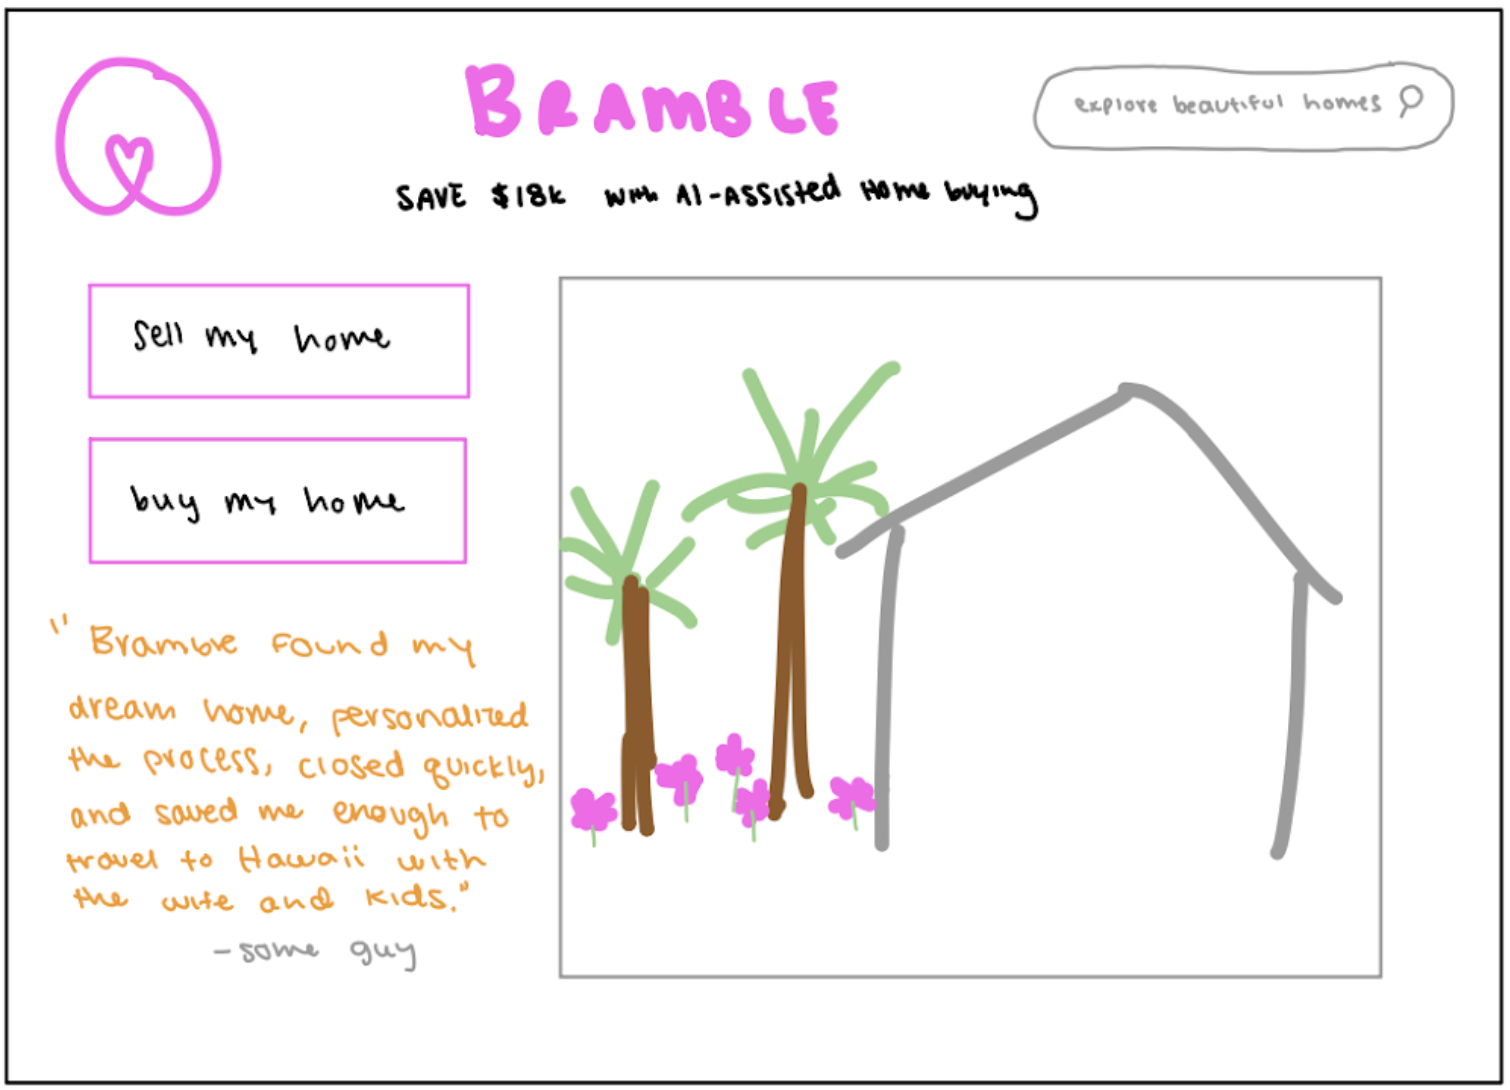 BRAMBLE
explore beautiful homes
SAVE $18k with AI-ASSISTED Home buying
Sell my home
buy my home
"Bramble found my
dream home, personalized
the process, closed quickly,
and saved me enough to
travel to Hawaii with
the wife and kids."
-some guy